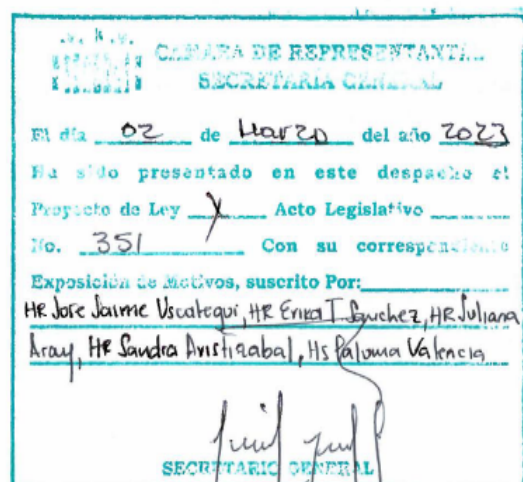 CAMARA DE REPRESENTANTES
SECRETARÍA GENERAL
El día 02 de Marzo del año 2023
Ha sido presentado en este despacho el
Proyecto de Ley X Acto Legislativo
No. 351 Con su correspondiente
Exposición de Motivos, suscrito Por:
HR Jose Jaime Uscategui, HR Erika T Sanchez, HR Juliana
Aray, HR Sandra Aristizabal, Hs Paloma Valencia
SECRETARIO GENERAL